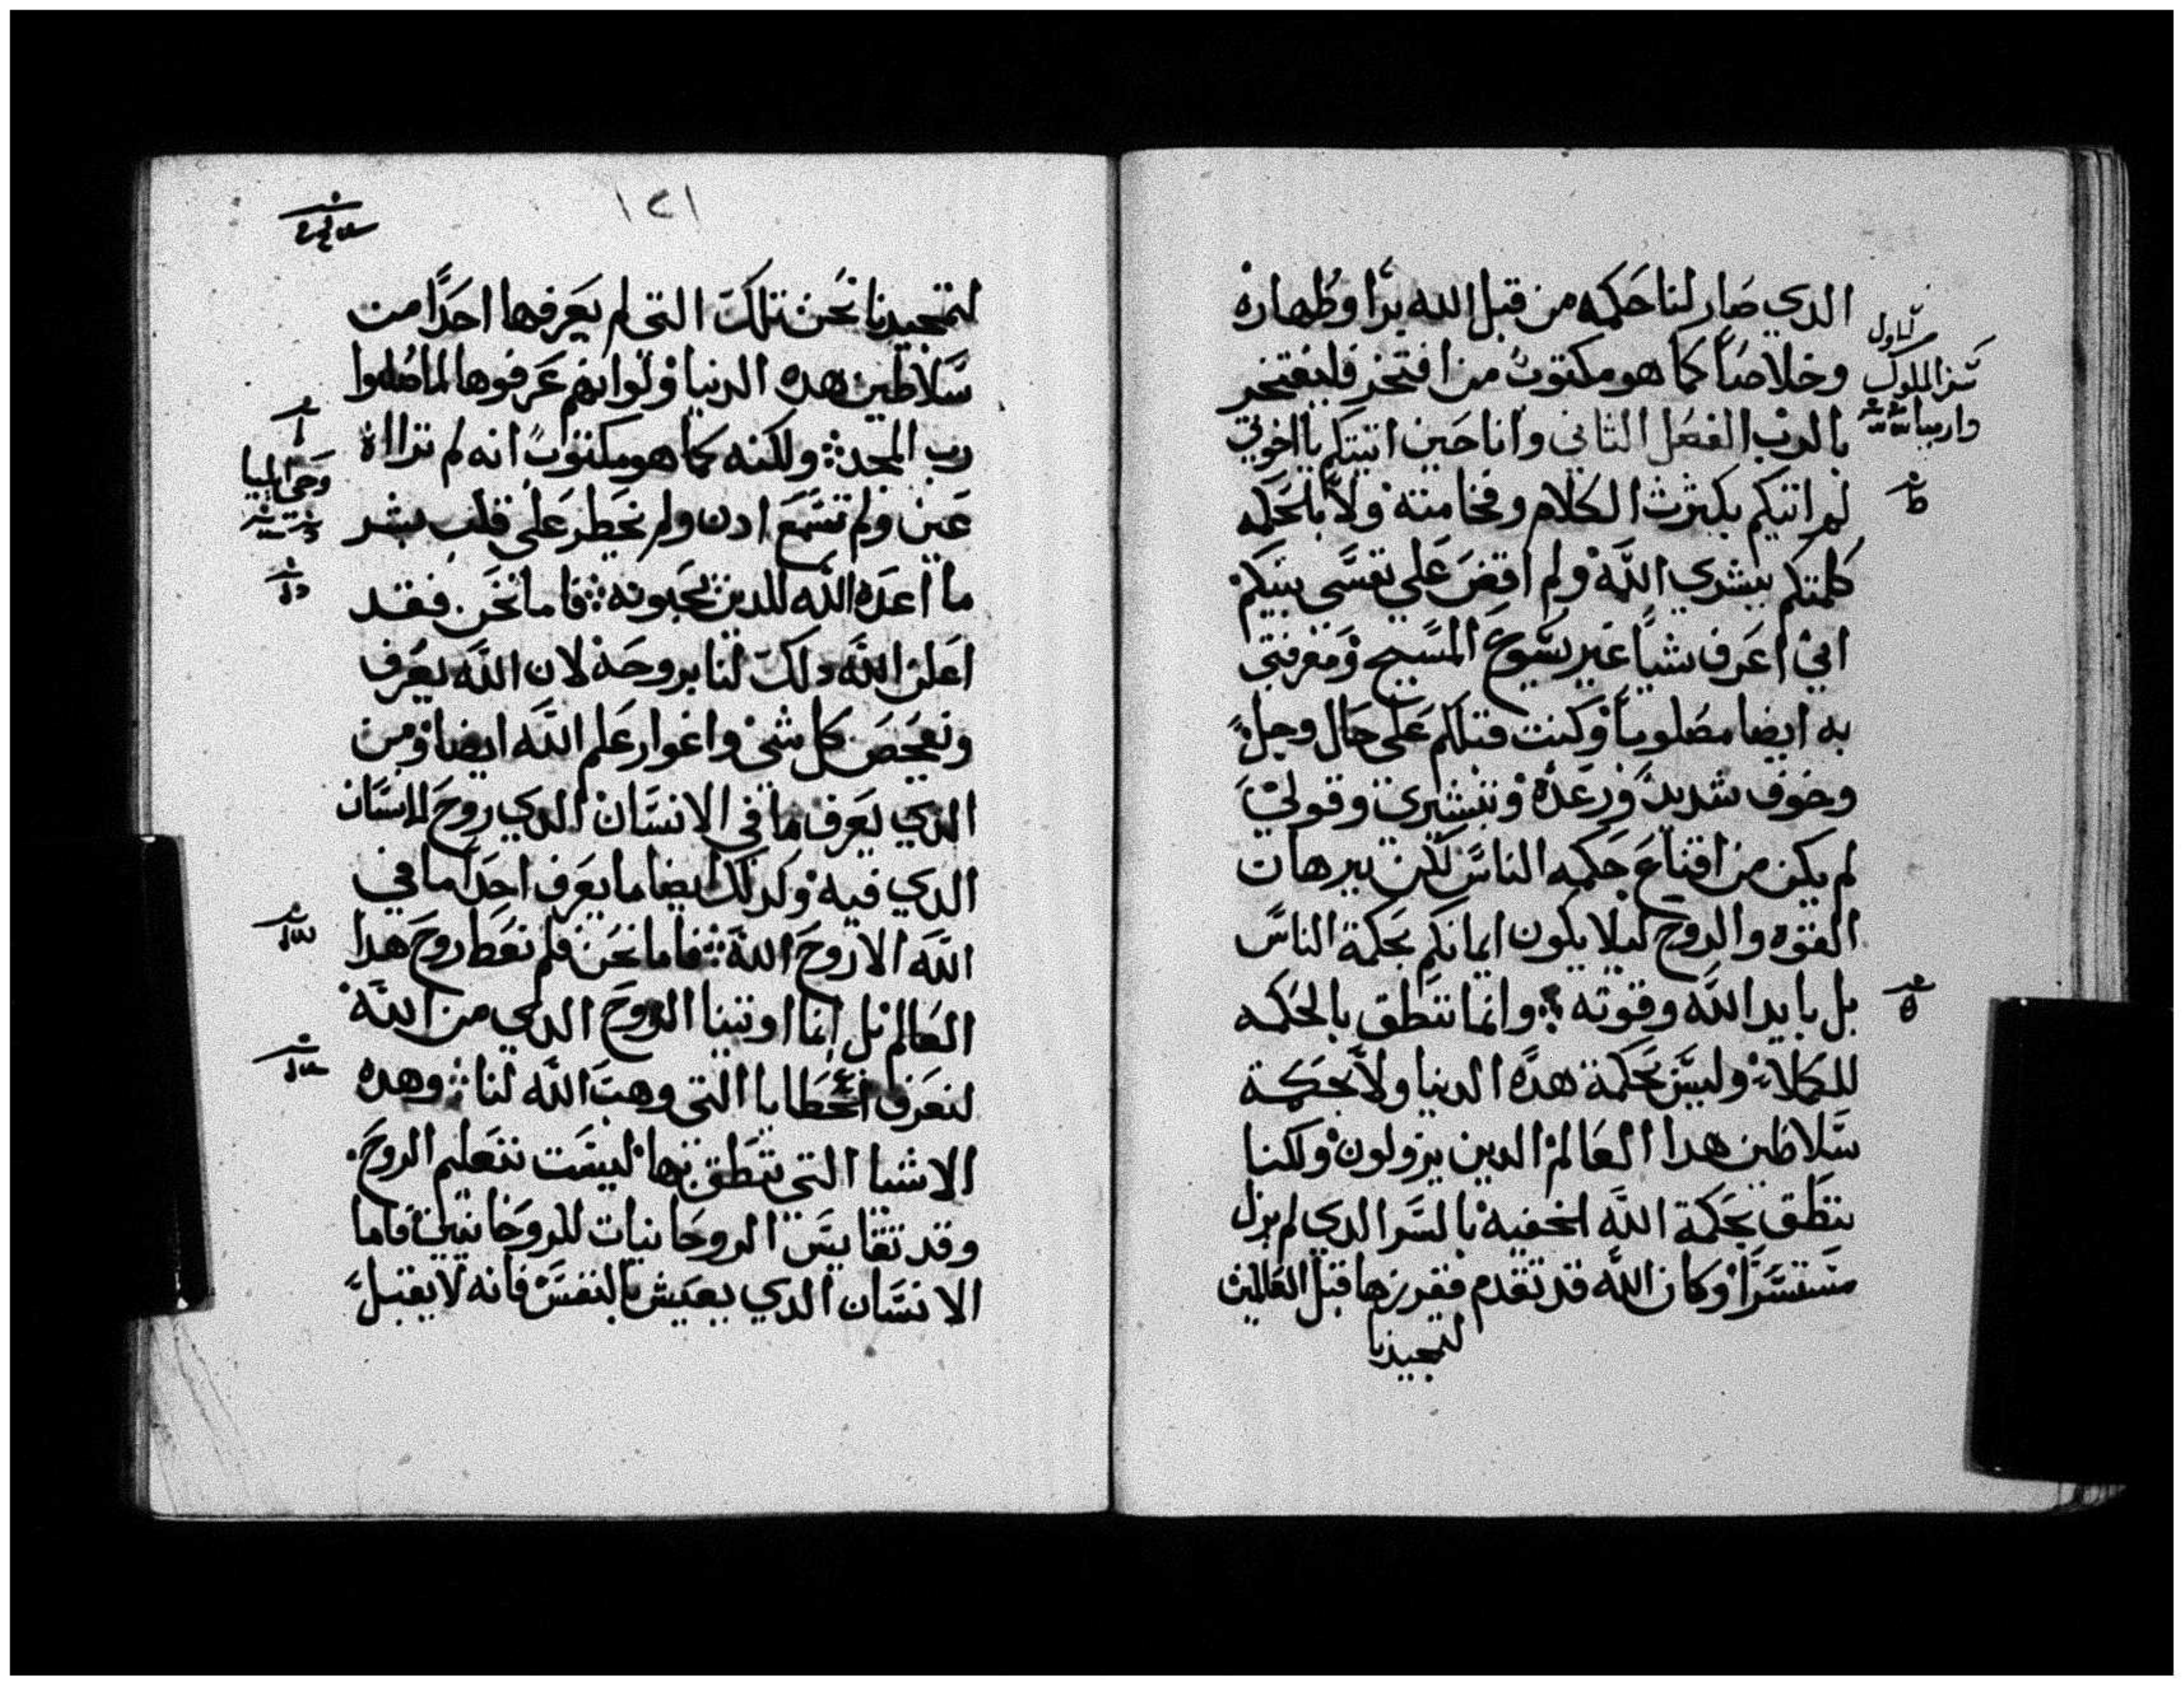 الدي صار لنا حكمه من قبل الله برا وطهاره
وخلاصا كما هو مكتوب من افتخر فليفتخر
بالرب الفصل الثاني وانا حين اتيتكم يا اخوتي
لم اتيكم بكثرت الكلام وفخامته ولا بالحكمه
كلمتكم ببشري الله ولم اقض علي نفسي بينكم
اني اعرف شيا غير يسوع المسيح ومعرفتي
به ايضا مصلوبا وكنت قبلكم علي حال وجل
وخوف شديد ورعده وتبشيري وقولي
لم يكن من اقناع حكمه الناس لكن ببرهان
القوه والروح ليلا يكون ايمانكم بحكمة الناس
بل بايد الله وقوته وانما ننطق بالحكمه
للكملاء وليس بحكمة هده الدنيا ولا بحكمة
سلاطين هدا العالم الدين يزولون ولكنا
ننطق بحكمة الله الخفيه بالسر الدي لم يزل
مستسرا وكان الله قد تقدم ففرزها قبل العالمين
لتمجيدنا
سفر الملوك
الاول
١٢١
لتمجيدنا نحن تلك التي لم يعرفها احدا من
سلاطين هده الدنيا ولو انهم عرفوها لما صلبوا
رب المجد ولكنه كما هو مكتوب انه لم تراه
عين ولم تسمع ادن ولم يخطر علي قلب بشر
ما اعده الله للدين يحبونه فاما نحن فقد
اعلن الله دلك لنا بروحه لان الله يعرف
ويفحص كل شي واغوار علم الله ايضا ومن
الدي يعرف ما في الانسان الدي روح الانسان
الدي فيه وكدلك ايضا ما يعرف احدا ما في
الله الا روح الله فاما نحن فلم نعط روح هدا
العالم بل انما اوتينا الروح الدي من الله
لنعرف العطايا التي وهب الله لنا وهده
الاشيا التي ننطق بها ليست بتعليم الروح
وقد تقايس الروحانيات للروحانيين فاما
الانسان الدي يعيش بالنفس فانه لا يقبل